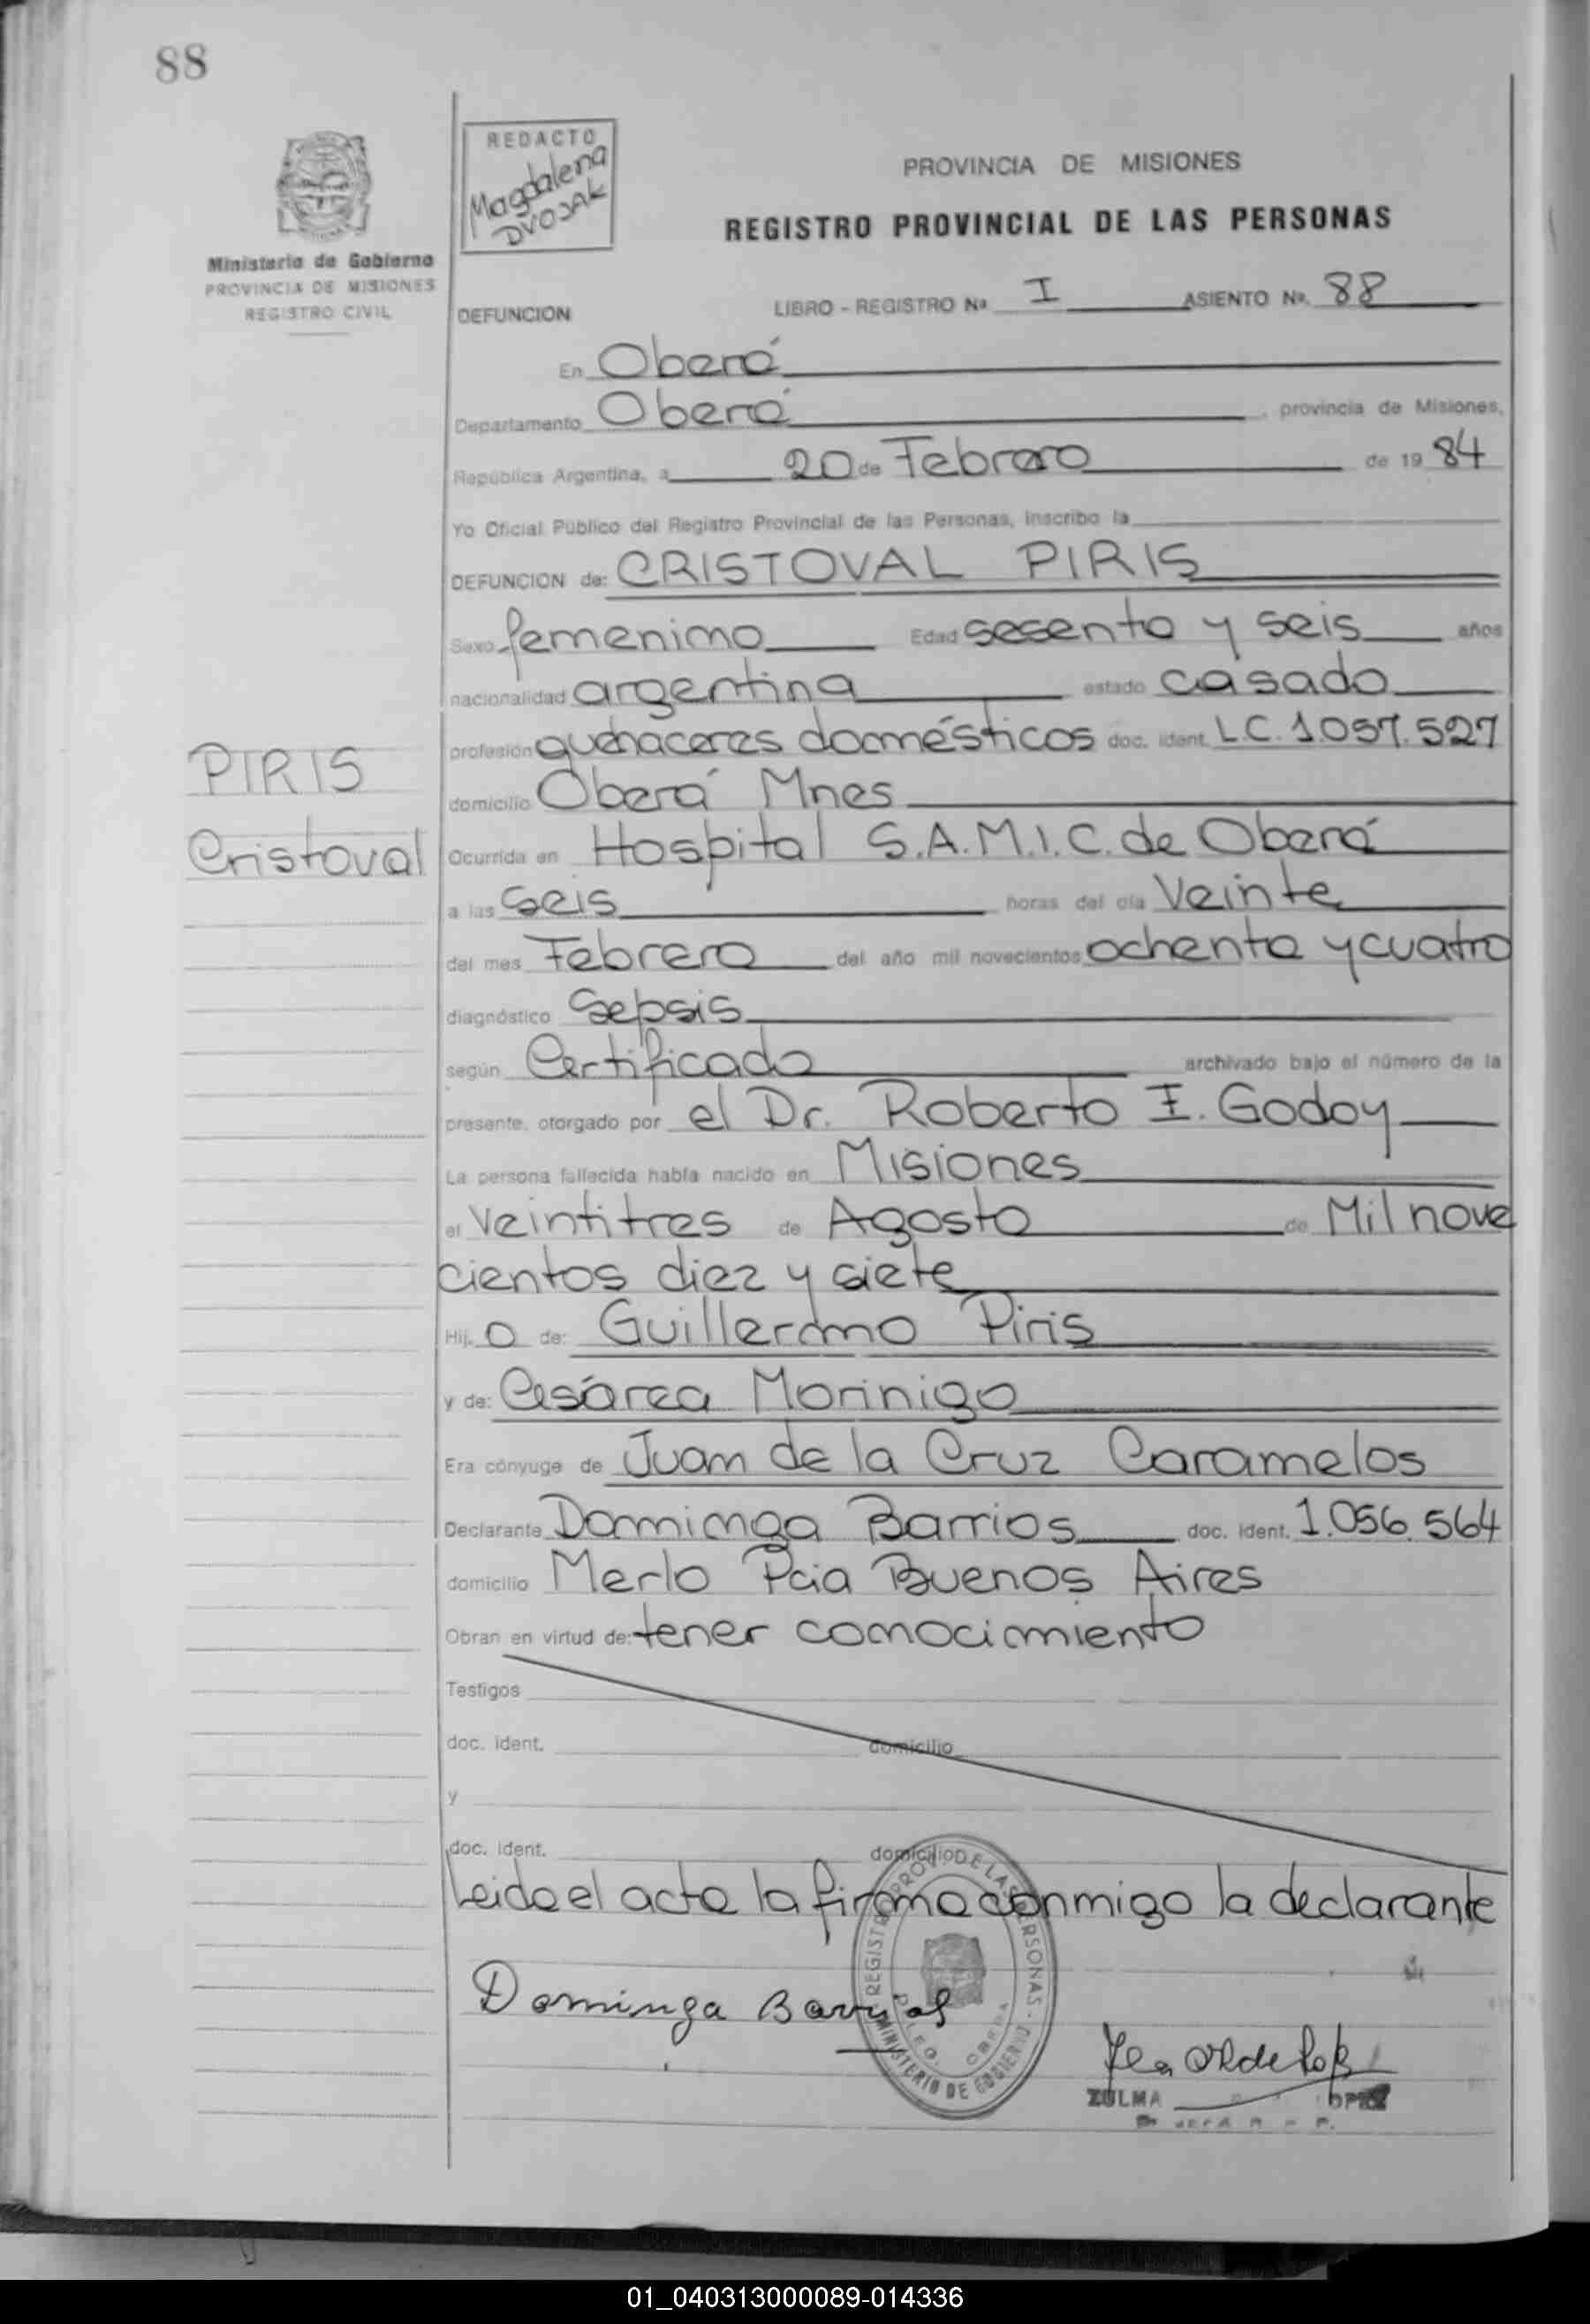 88
REDACTO
Magdalena
DVOJAK
Ministerio de Gobierno
PROVINCIA DE MISIONES
REGISTRO CIVIL
PROVINCIA DE MISIONES
REGISTRO PROVINCIAL DE LAS PERSONAS
DEFUNCION LIBRO - REGISTRO Nº I ASIENTO Nº. 88
En Oberá
Departamento Oberá, provincia de Misiones,
República Argentina, a 20 de Febrero de 19 84
Yo Oficial Público del Registro Provincial de las Personas, inscribo la
DEFUNCION de: CRISTOVAL PIRIS
Sexo femenimo Edad sesenta y seis años
nacionalidad argentina estado casado
profesión quehaceres domésticos doc. ident. L.C. 1.057.527
PIRIS
domicilio Oberá Mnes
Cristoval
Ocurrida en Hospital S.A.M.I.C. de Oberá
a las seis horas del día Veinte
del mes Febrero del año mil novecientos ochenta y cuatro
diagnóstico Sepsis
según Certificado archivado bajo el número de la
presente, otorgado por el Dr. Roberto I. Godoy
La persona fallecida había nacido en Misiones
el Veintitres de Agosto de Mil nove
cientos diez y siete
Hij o de: Guillermo Piris
y de: Cesárea Morinigo
Era cónyuge de Juan de la Cruz Caramelos
Declarante Dominga Barrios doc. ident. 1.056.564
domicilio Merlo Pcia Buenos Aires
Obran en virtud de: tener conocimiento
Testigos
doc. ident. domicilio
y
doc. ident. domicilio
Leida el acta la firma conmigo la declarante
Dominga Barrios
REGISTRO PROV. DE LAS PERSONAS - MINISTERIO DE GOBIERNO
OBERA
ZULMA
01_040313000089-014336